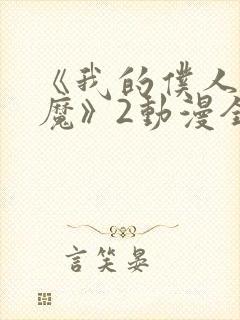 《我的僕人
魔》2動漫全
言笑晏